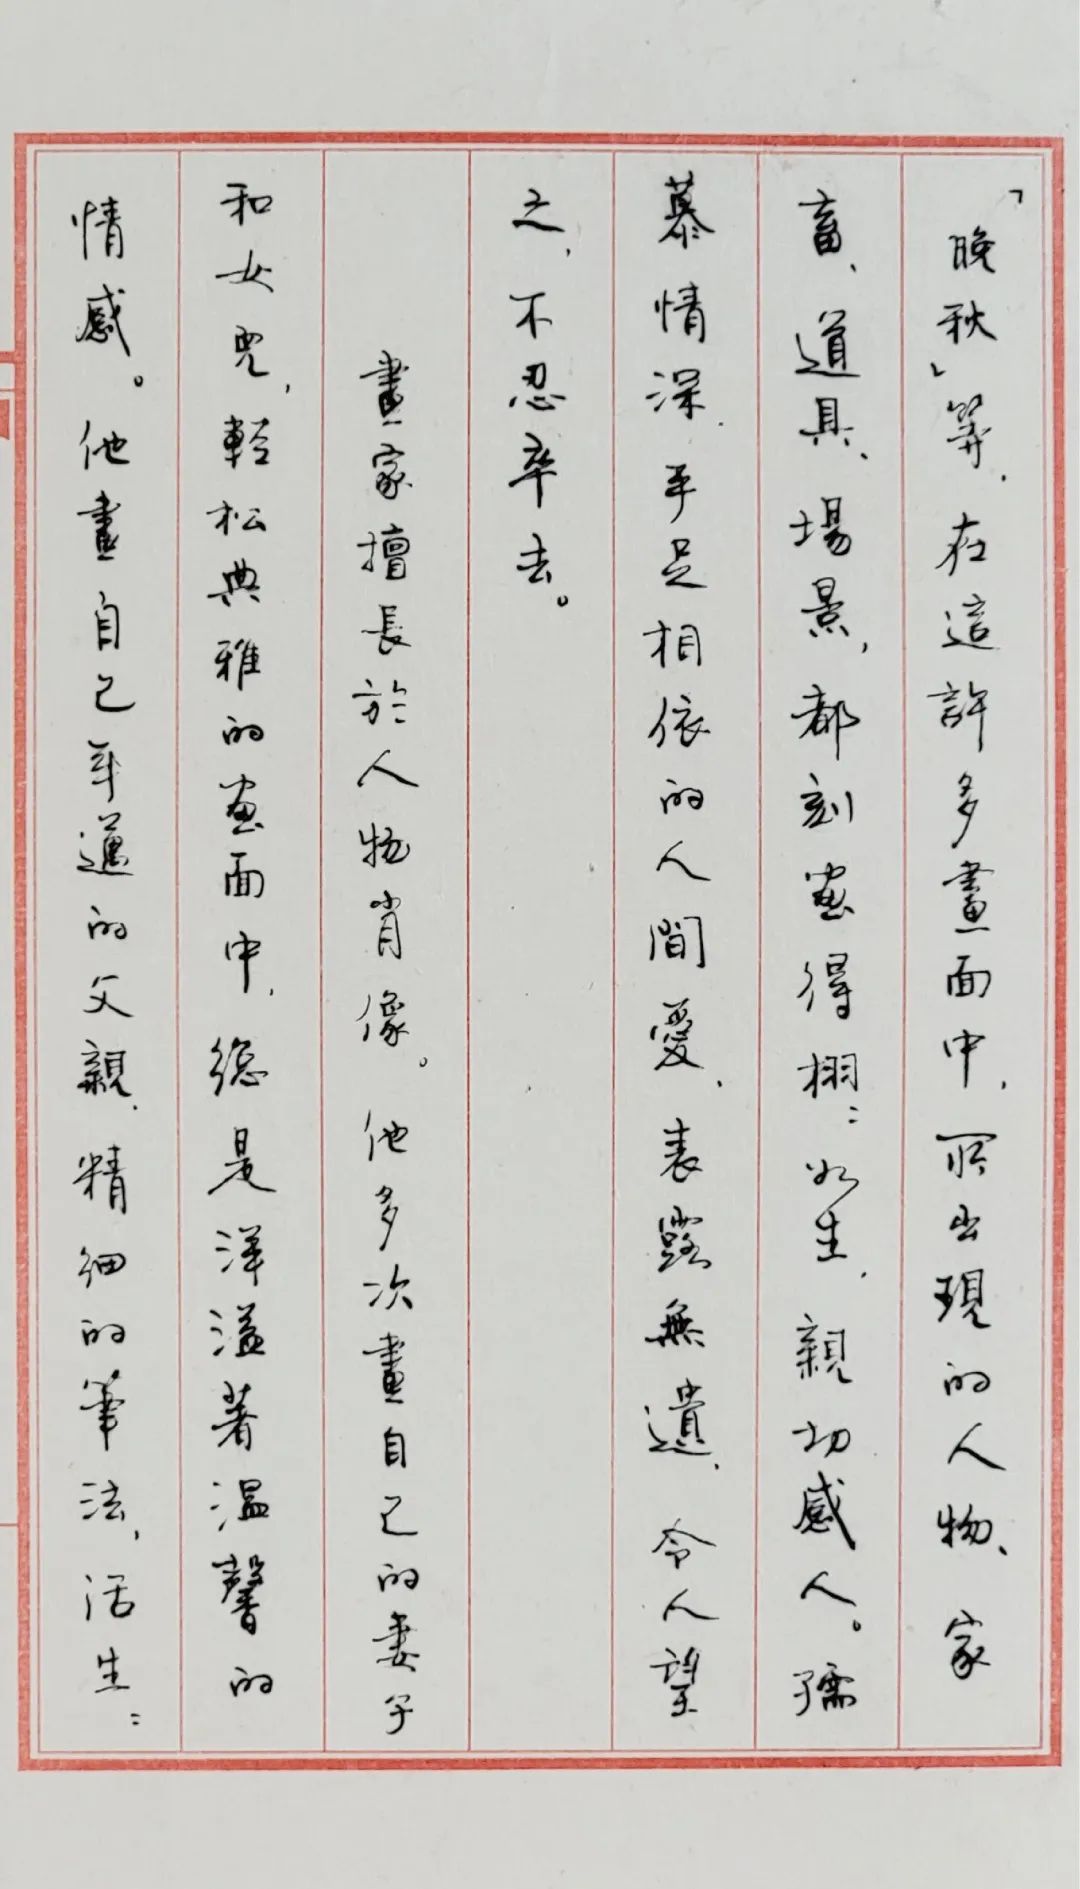 「晚秋」等，在這許多畫面中，所出現的人物、家
畜、道具、場景，都刻畫得栩〻如生，親切感人。孺
慕情深，手足相依的人間愛，表露無遺，令人望
之，不忍卒去。
畫家擅長於人物肖像。他多次畫自己的妻子
和女兒，輕松典雅的畫面中，總是洋溢著溫馨的
情感。他畫自己年邁的父親，精細的筆法，活生〻